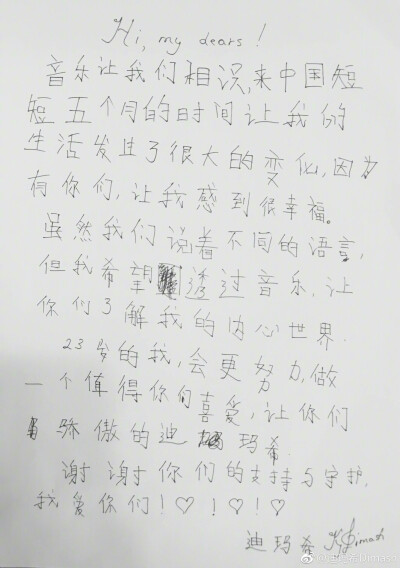 Hi, my dears!
音乐让我们相识,来中国短
短五个月的时间让我的
生活发生了很大的变化,因为
有你们,让我感到很幸福。
虽然我们说着不同的语言,
但我希望透过音乐,让
你们了解我的内心世界.
23岁的我,会更努力,做
一个值得你们喜爱,让你们
骄傲的迪玛希.
谢谢你们的支持与守护,
我爱你们!♡!♡!♡
迪玛希 Dimash